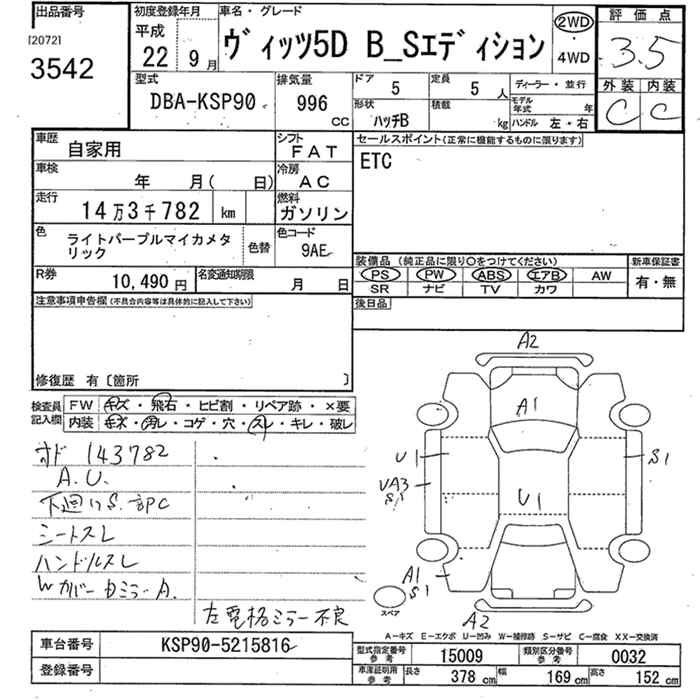 出品番号
[20721
3542
初度登録年月
平成
22 9月
車名・グレード
ヴィッツ5D B_Sエディション
2WD
・
4WD
評価点
3.5
外装 内装
C C
型式
DBA-KSP90
排気量
996
CC
ドア
5
定員
5 人
ディーラー・並行
形状
ハッチB
積載
kg
モデル年式 年
ハンドル 左・右
車歴
自家用
シフト
FAT
車検
年 月( 日)
冷房
AC
走行
14万3千782 km
燃料
ガソリン
色
ライトパープルマイカメタリック
色替
色コード
9AE
R券
10,490 円
名変通知期限
月 日
セールスポイント(正常に機能するものに限ります)
ETC
装備品 (純正品に限り○をつけてください)
PS PW ABS エアB AW
SR ナビ TV カワ
新車保証書
有・無
後日品
注意事項申告欄(不具合内容等は具体的に記入して下さい)
修復歴 有〔箇所 〕
検査員記入欄
FW キズ・飛石・ヒビ割・リペア跡・×要
内装 キズ・汚レ・コゲ・穴・スレ・キレ・破レ
オド 143782
A.U.
下廻りS.部PC
シートスレ
ハンドルスレ
Wカバー
ミラーA.
左電格ミラー不良
A2
A1
U1
UA3
S1
U1
S1
A1
S1
スペア
A2
A-キズ E-エクボ U-凹み W-補修跡 S-サビ C-腐食 XX-交換済
車台番号
KSP90-5215816
登録番号
型式指定番号
参考
15009
類別区分番号
参考
0032
車庫証明用
参考
長さ 378 cm 幅 169 cm 高さ 152 cm